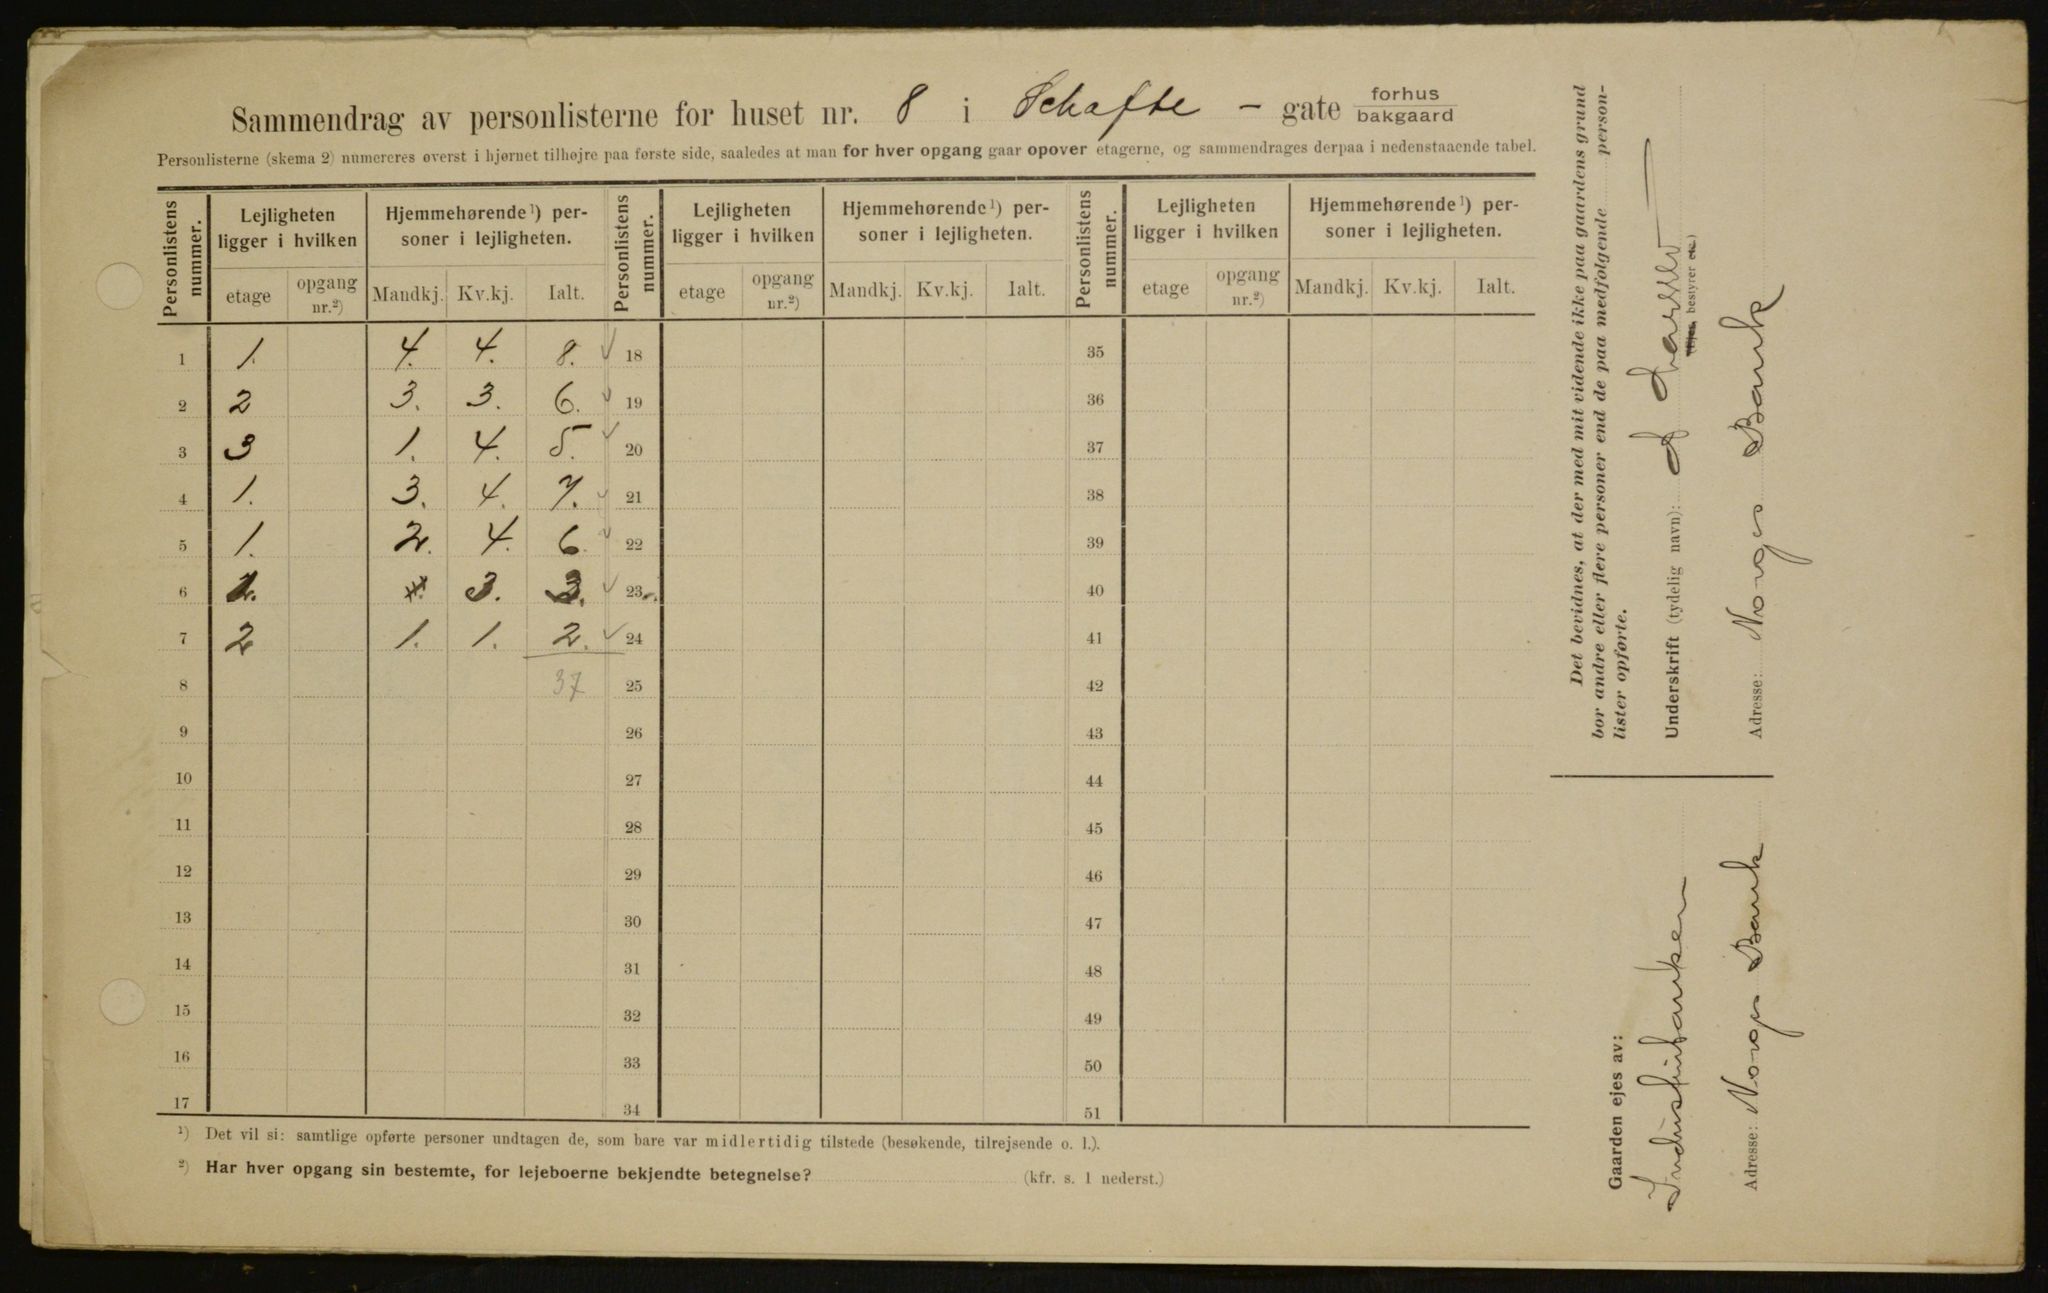 Sammendrag av personlisterne for huset nr. 8 i Schafte - gate forhus bakgaard
Personlisterne (skema 2) numereres øverst i hjørnet tilhøjre paa første side, saaledes at man for hver opgang gaar opover etagerne, og sammendrages derpaa i nedenstaaende tabel.
Personlistens nummer. Lejligheten ligger i hvilken Hjemmehørende 1) personer i lejligheten. Personlistens nummer. Lejligheten ligger i hvilken Hjemmehørende 1) personer i lejligheten. Personlistens nummer. Lejligheten ligger i hvilken Hjemmehørende 1) personer i lejligheten.
etage opgang nr.2) Mandkj. Kv.kj. Ialt. etage opgang nr.2) Mandkj. Kv.kj. Ialt. etage opgang nr.2) Mandkj. Kv.kj. Ialt.
1 1. 4. 4. 8. 18 35
2 2 3. 3. 6. 19 36
3 3 1. 4. 5. 20 37
4 1. 3. 4. 7. 21 38
5 1. 2. 4. 6. 22 39
6 3. 3. 23 40
7 2 1. 1. 2. 24 41
8 37 25 42
9 26 43
10 27 44
11 28 45
12 29 46
13 30 47
14 31 48
15 32 49
16 33 50
17 34 51
1) Det vil si: samtlige opførte personer undtagen de, som bare var midlertidig tilstede (besøkende, tilrejsende o. l.).
2) Har hver opgang sin bestemte, for lejeboerne bekjendte betegnelse? (kfr. s. 1 nederst.)
Det bevidnes, at der med mit vidende ikke paa gaardens grund
bor andre eller flere personer end de paa medfølgende personlister opførte.
Underskrift (tydelig navn):
(Ejer, bestyrer etc.)
Adresse: Norges Bank
Gaarden ejes av:
Industribanken
Adresse: Norges Bank